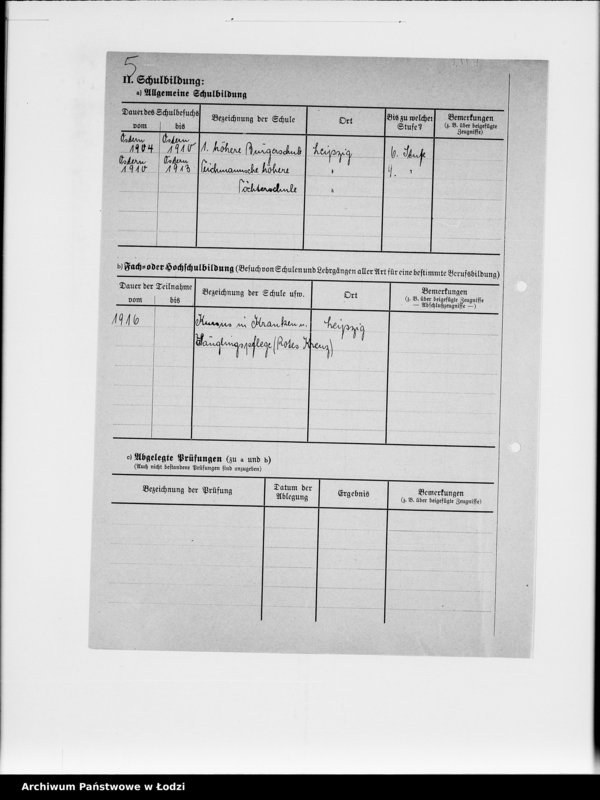 5
II. Schulbildung:
a) Allgemeine Schulbildung
Dauer des Schulbesuchs
vom bis
Bezeichnung der Schule
Ort
Bis zu welcher Stufe?
Bemerkungen
(z. B. über beigefügte Zeugnisse)
Ostern 1904 Ostern 1910 1. höhere Bürgerschule Leipzig 6. Stufe
Ostern 1910 Ostern 1913 Teichmannsche höhere " 4. "
Töchterschule "
b) Fach- oder Hochschulbildung (Besuch von Schulen und Lehrgängen aller Art für eine bestimmte Berufsbildung)
Dauer der Teilnahme
vom bis
Bezeichnung der Schule usw.
Ort
Bemerkungen
(z. B. über beigefügte Zeugnisse
— Abschlußzeugnisse —)
1916 Kursus in Kranken u. Leipzig
Säuglingspflege (Rotes Kreuz)
c) Abgelegte Prüfungen (zu a und b)
(Auch nicht bestandene Prüfungen sind anzugeben)
Bezeichnung der Prüfung
Datum der Ablegung
Ergebnis
Bemerkungen
(z. B. über beigefügte Zeugnisse)
Archiwum Państwowe w Łodzi